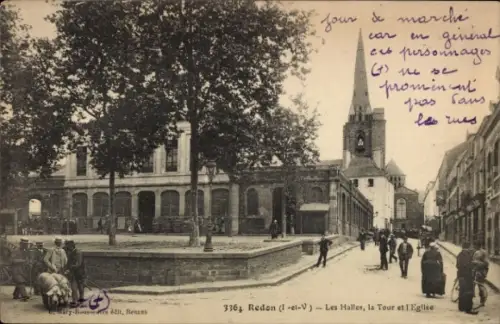 jour de marché
car en général
ces personnages
(G) ne se
promènent
pas dans
les rues
(G)
3363 REDON (I-et-V) — Les Halles, la Tour et l'Eglise
édit, Rennes